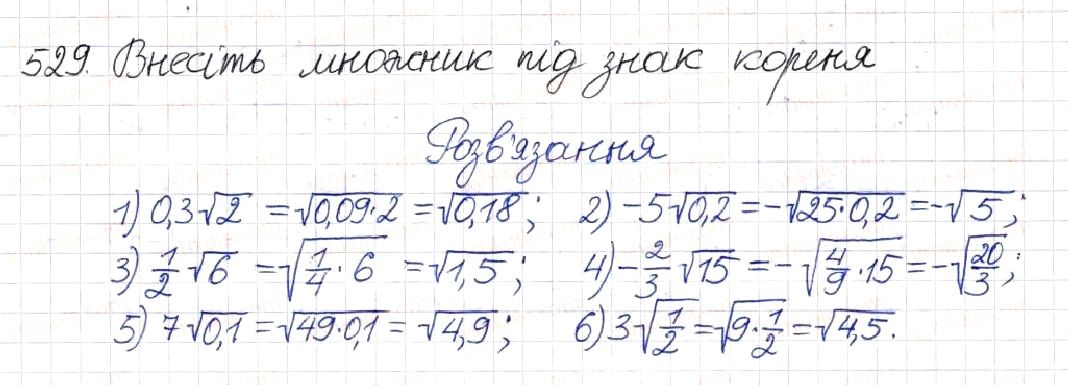 529. Внесіть множник під знак кореня
Розв'язання
1) 0,3√2 = √0,09·2 = √0,18; 2) -5√0,2 = -√25·0,2 = -√5;
3) 1/2 √6 = √1/4 · 6 = √1,5; 4) -2/3 √15 = -√4/9 · 15 = -√20/3;
5) 7√0,1 = √49·0,1 = √4,9; 6) 3√1/2 = √9·1/2 = √4,5.